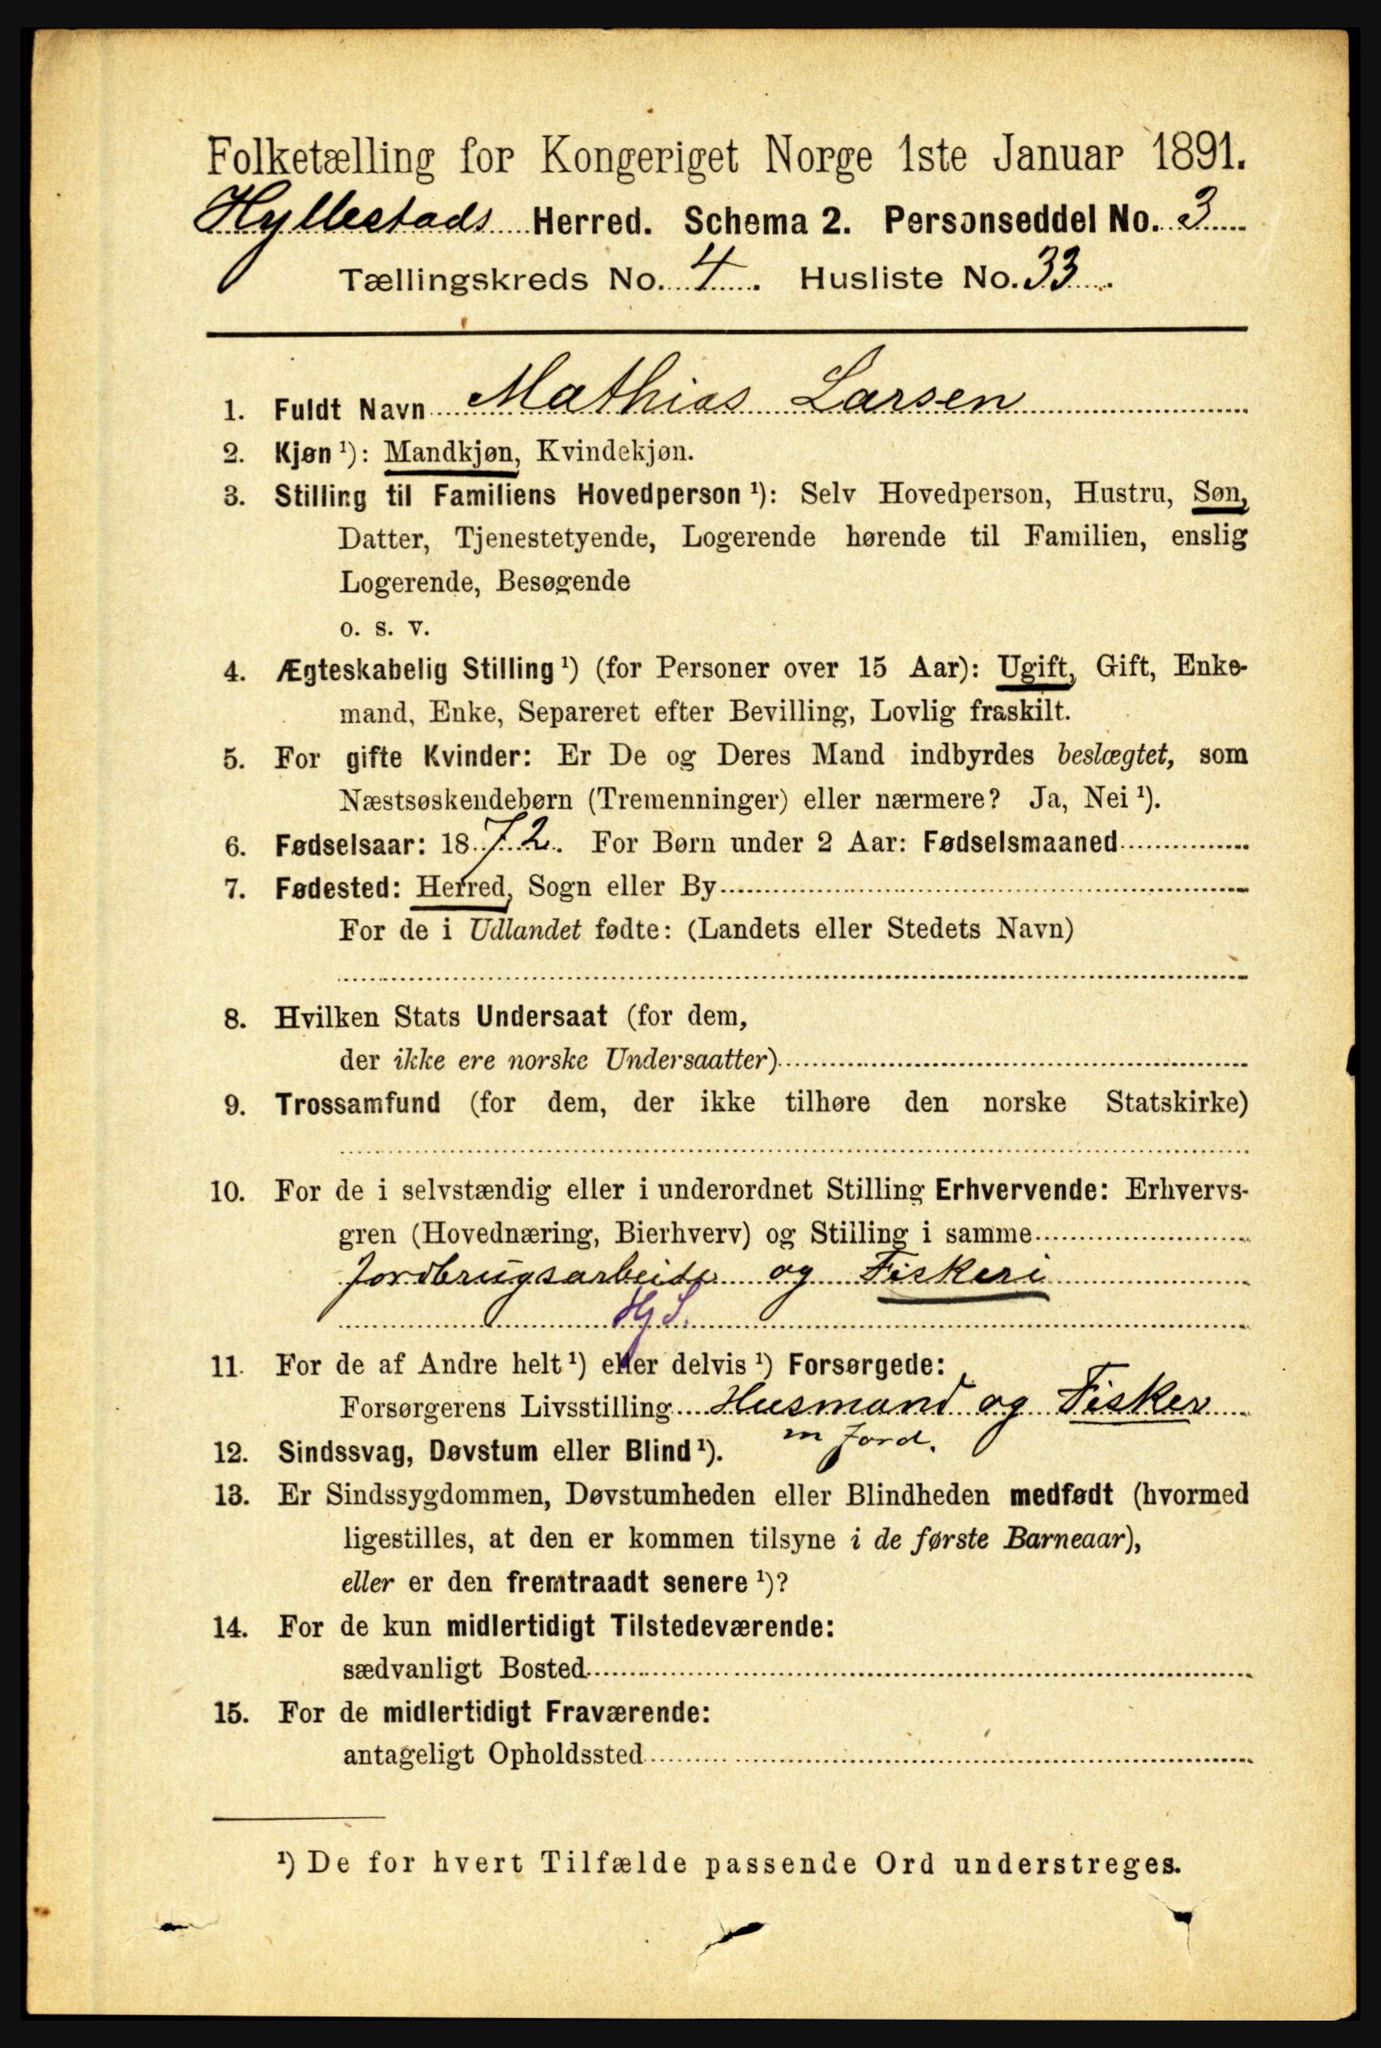 Folketælling for Kongeriget Norge 1ste Januar 1891.
Hyllestads Herred. Schema 2. Personseddel No. 3
Tællingskreds No. 4. Husliste No. 33.
1. Fuldt Navn Mathias Larsen
2. Kjøn ¹): Mandkjøn, Kvindekjøn.
3. Stilling til Familiens Hovedperson ¹): Selv Hovedperson, Hustru, Søn,
Datter, Tjenestetyende, Logerende hørende til Familien, enslig
Logerende, Besøgende
o. s. v.
4. Ægteskabelig Stilling ¹) (for Personer over 15 Aar): Ugift, Gift, Enke-
mand, Enke, Separeret efter Bevilling, Lovlig fraskilt.
5. For gifte Kvinder: Er De og Deres Mand indbyrdes beslægtet, som
Næstsøskendebørn (Tremenninger) eller nærmere? Ja, Nei ¹).
6. Fødselsaar: 1872. For Børn under 2 Aar: Fødselsmaaned
7. Fødested: Herred, Sogn eller By
For de i Udlandet fødte: (Landets eller Stedets Navn)
8. Hvilken Stats Undersaat (for dem,
der ikke ere norske Undersaatter)
9. Trossamfund (for dem, der ikke tilhøre den norske Statskirke)
10. For de i selvstændig eller i underordnet Stilling Erhvervende: Erhvervs-
gren (Hovednæring, Bierhverv) og Stilling i samme
Jordbrugsarbeide og Fiskeri
HjS.
11. For de af Andre helt ¹) eller delvis ¹) Forsørgede:
Forsørgerens Livsstilling Husmand og Fisker
m Jord.
12. Sindssvag, Døvstum eller Blind ¹).
13. Er Sindssygdommen, Døvstumheden eller Blindheden medfødt (hvormed
ligestilles, at den er kommen tilsyne i de første Barneaar),
eller er den fremtraadt senere ¹)?
14. For de kun midlertidigt Tilstedeværende:
sædvanligt Bosted
15. For de midlertidigt Fraværende:
antageligt Opholdssted
¹) De for hvert Tilfælde passende Ord understreges.